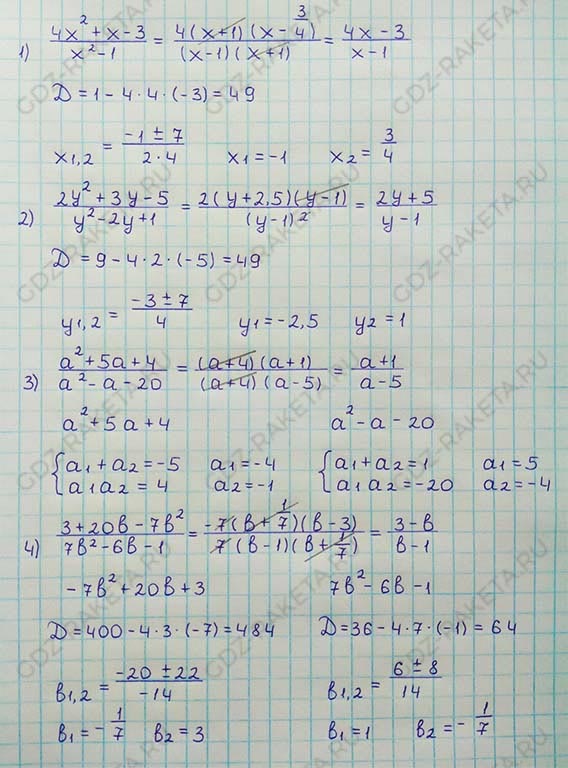 1) (4x² + x - 3)/(x² - 1) = 4(x+1)(x - 3/4)/((x-1)(x+1)) = (4x - 3)/(x - 1)
D = 1 - 4 · 4 · (-3) = 49
x1,2 = (-1 ± 7)/(2 · 4) x1 = -1 x2 = 3/4
2) (2y² + 3y - 5)/(y² - 2y + 1) = 2(y + 2,5)(y - 1)/(y - 1)² = (2y + 5)/(y - 1)
D = 9 - 4 · 2 · (-5) = 49
y1,2 = (-3 ± 7)/4 y1 = -2,5 y2 = 1
3) (a² + 5a + 4)/(a² - a - 20) = (a+4)(a+1)/((a+4)(a-5)) = (a+1)/(a-5)
a² + 5a + 4 a² - a - 20
{a1 + a2 = -5 a1 = -4 {a1 + a2 = 1 a1 = 5
a1a2 = 4 a2 = -1 a1a2 = -20 a2 = -4
4) (3 + 20в - 7в²)/(7в² - 6в - 1) = -7(в + 1/7)(в - 3)/(7(в - 1)(в + 1/7)) = (3 - в)/(в - 1)
-7в² + 20в + 3 7в² - 6в - 1
D = 400 - 4 · 3 · (-7) = 484 D = 36 - 4 · 7 · (-1) = 64
в1,2 = (-20 ± 22)/-14 в1,2 = (6 ± 8)/14
в1 = -1/7 в2 = 3 в1 = 1 в2 = -1/7
GDZ-RAKETA.RU